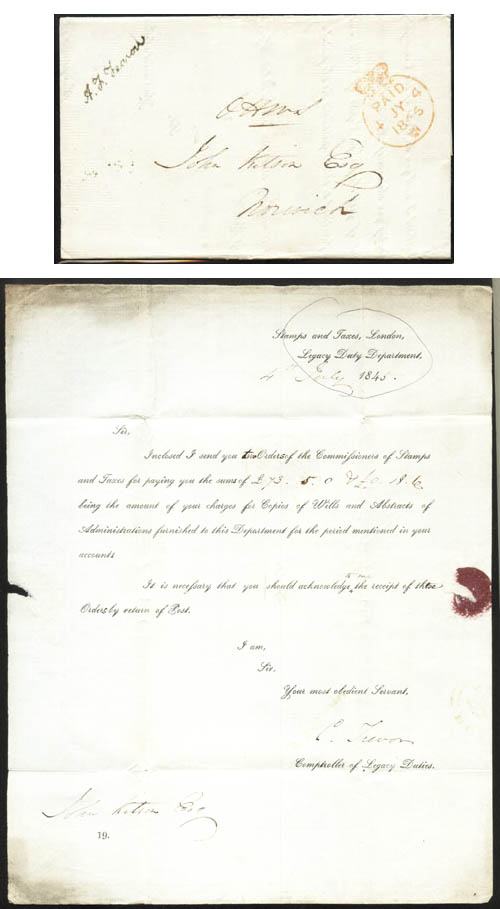 PAID
4 JY 4
1845
OHMS
John Kitson Esq
Norwich
Stamps and Taxes, London,
Legacy Duty Department,
4th July 1845.
Sir,
Inclosed I send you two Orders of the Commissioners of Stamps
and Taxes for paying you the sums of £73. 5. 0 & £0. 18. 6
being the amount of your charges for Copies of Wills and Abstracts of
Administrations furnished to this Department for the period mentioned in your
accounts
It is necessary that you should acknowledge to me the receipt of these
Orders by return of Post.
I am,
Sir,
Your most obedient Servant,
C. Trevor
Comptroller of Legacy Duties.
John Kitson Esq
19.